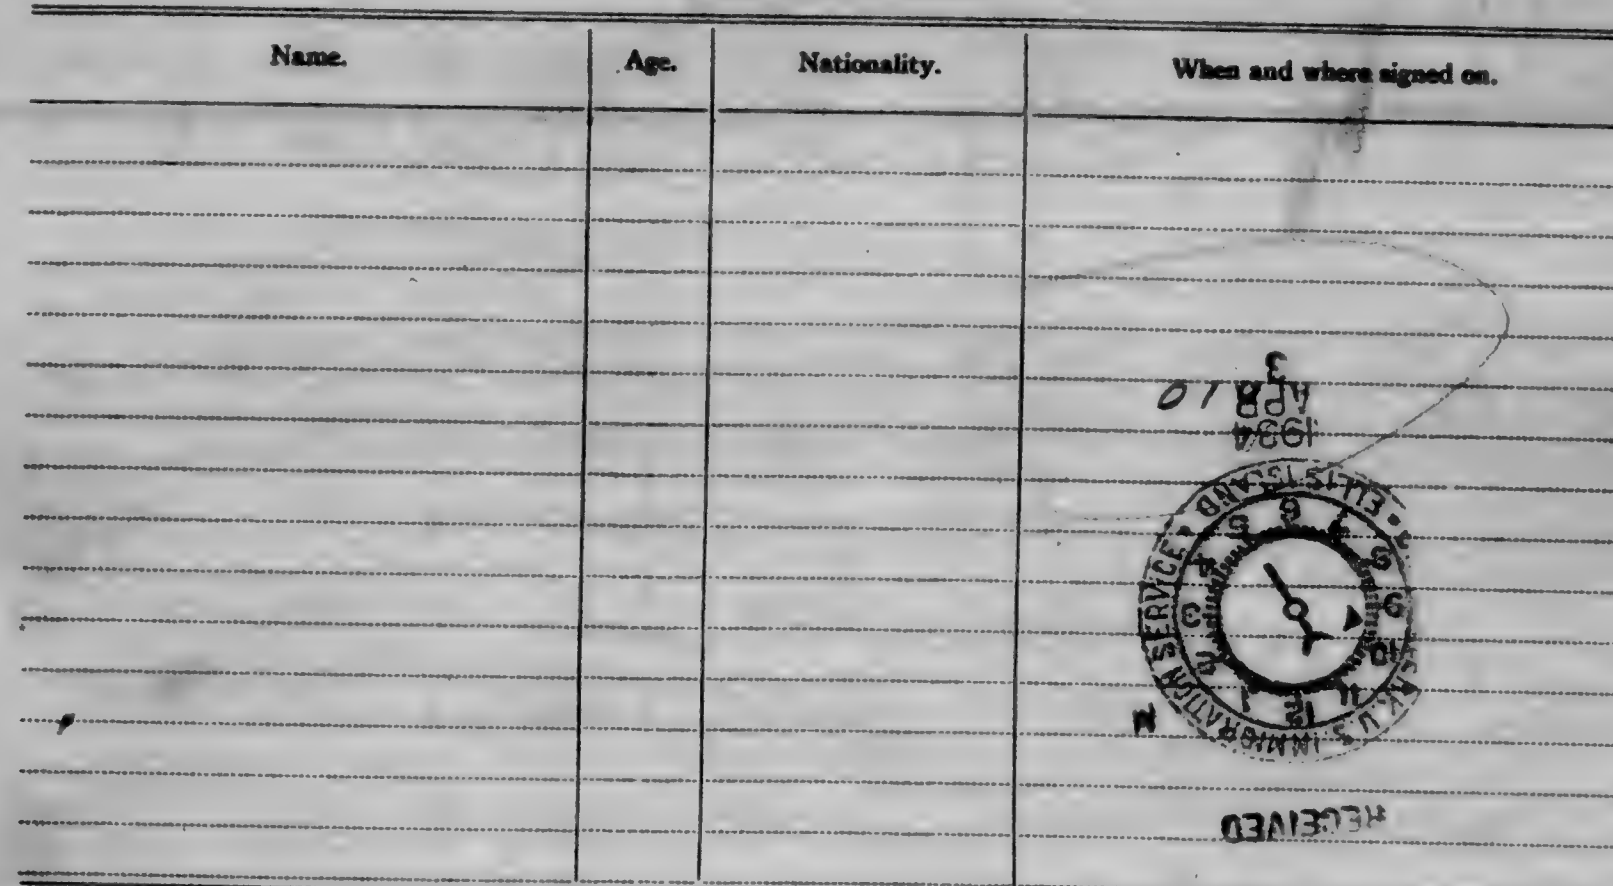 Name. Age. Nationality. When and where signed on.
RECEIVED
U.S. IMMIGRATION SERVICE • ELLIS ISLAND
12 1 2 3 4 5 6 7 8 9 10 11
M
1934
APR
3